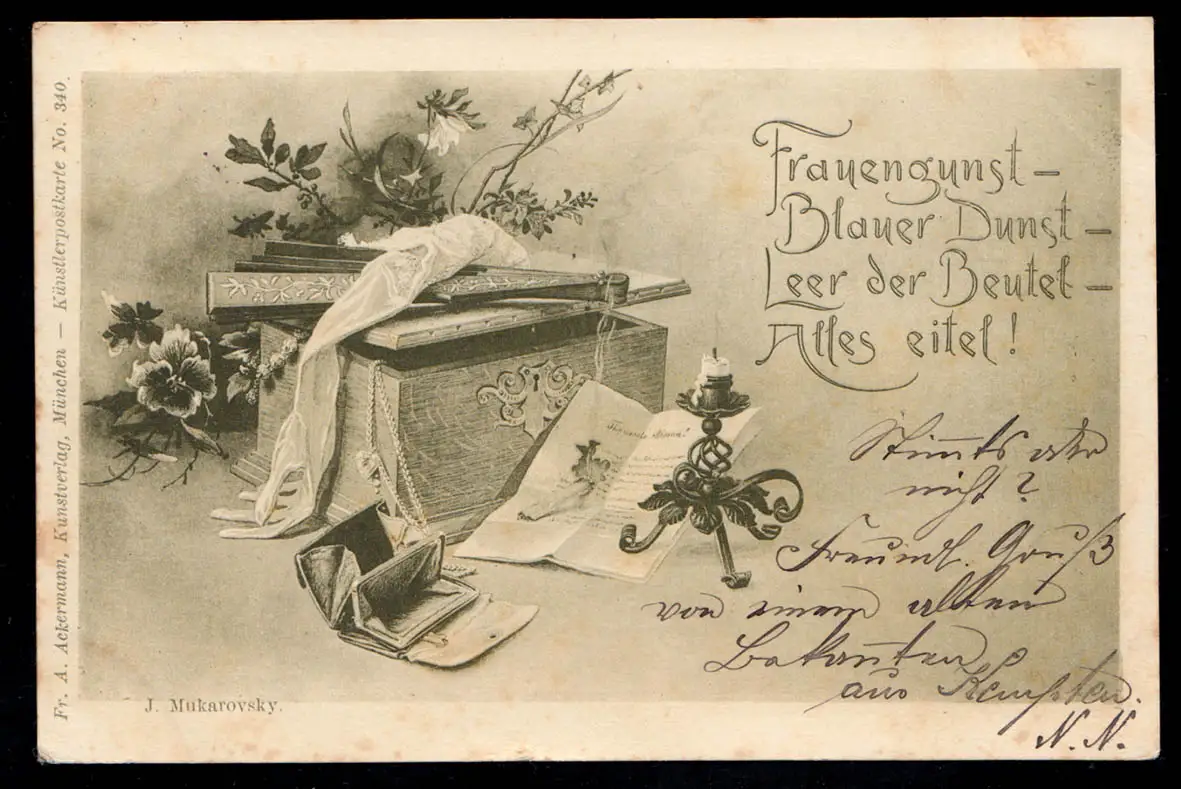 Frauengunst –
Blauer Dunst –
Leer der Beutel –
Alles eitel!
Stimmts oder
nicht?
Freundl. Gruß
von einem alten
Bekannten
aus Kempten.
N. N.
J. Mukarovsky.
Fr. A. Ackermann, Kunstverlag, München — Künstlerpostkarte No. 340.